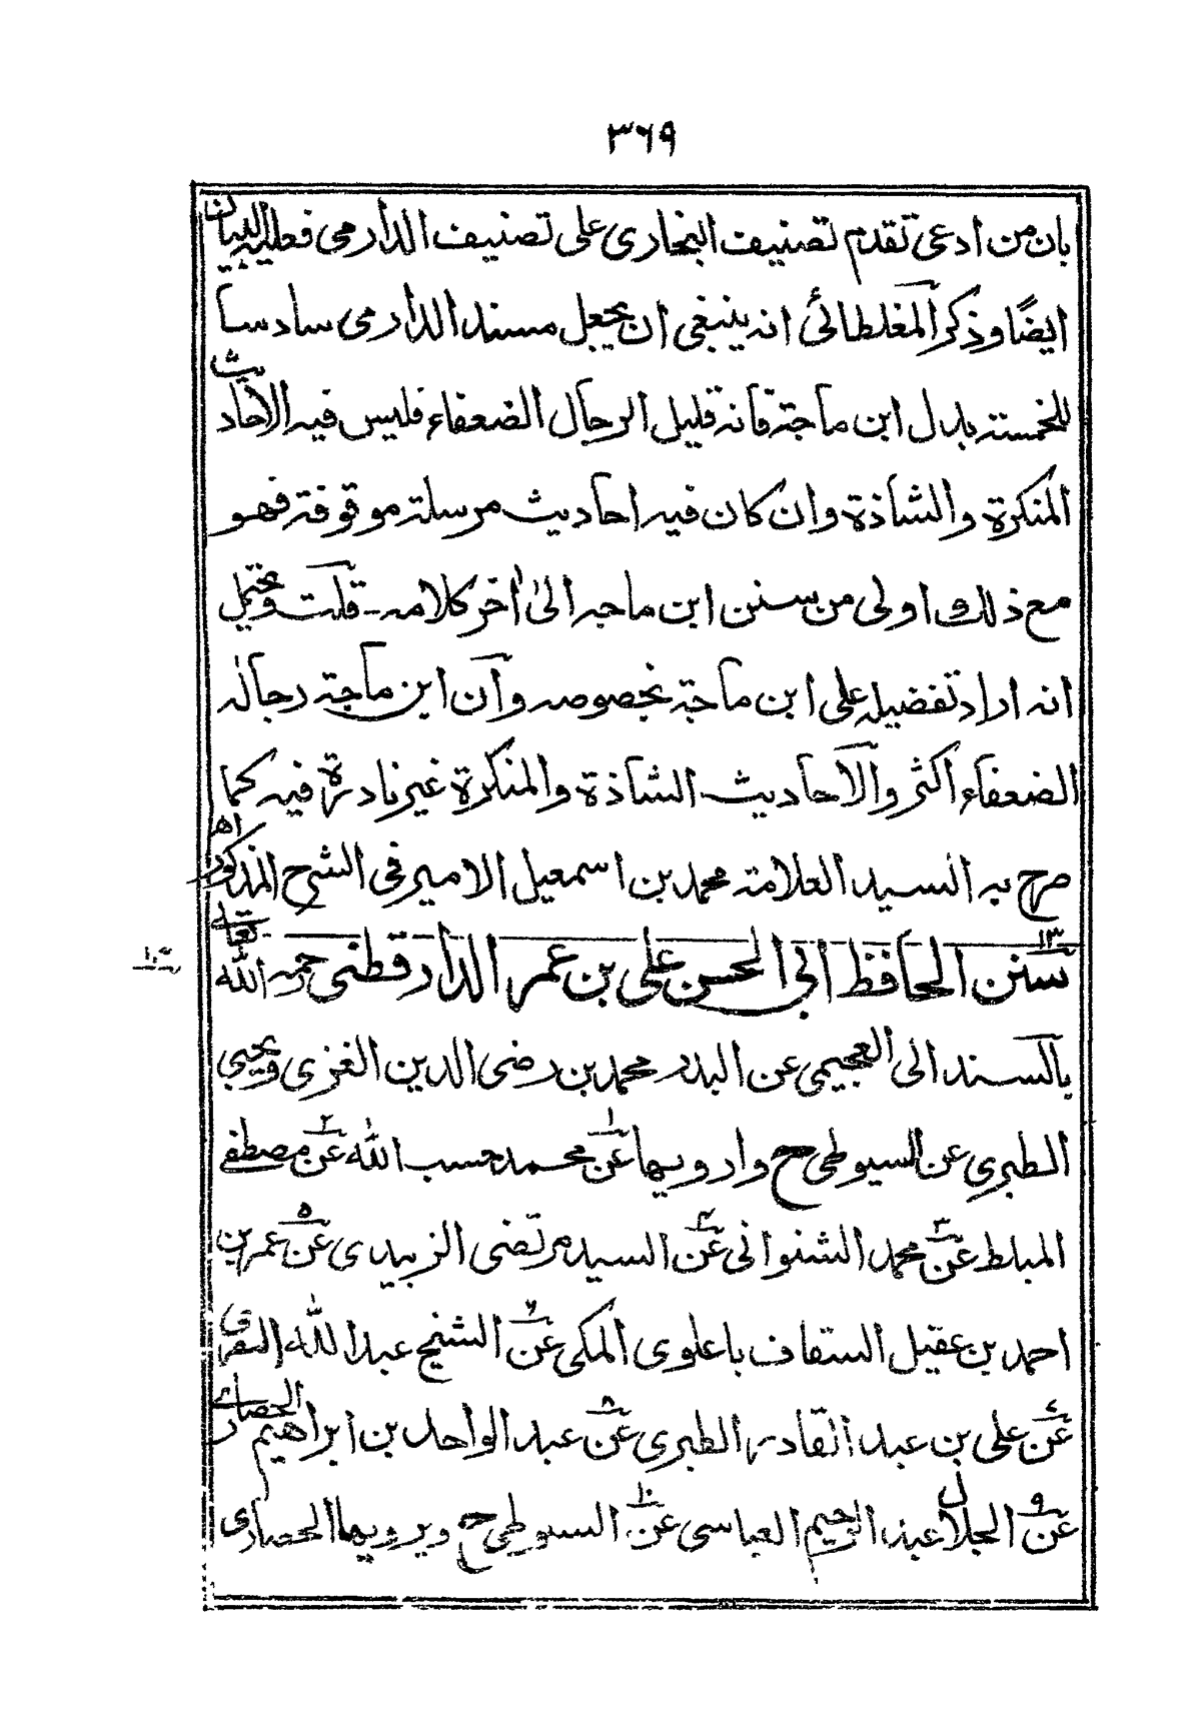 ٣٦٩
بان من ادعى تقدم تصنيف البخارى على تصنيف الدارمى فعليه البيان
ايضًا وذكر المغلطائى انه ينبغى ان يجعل مسند الدارمى سادسا
للخمسة بدل ابن ماجة فانه قليل الرجال الضعفاء فليس فيه الاحاديث
المنكرة والشاذة وان كان فيه احاديث مرسلة موقوفة فهو
مع ذلك اولى من سنن ابن ماجه الىٰ اٰخر كلامه - قلت ويحتمل
انه اراد تفضيله على ابن ماجة بخصوصه وآن ابن ماجة رجاله
الضعفاء اكثر والاحاديث الشاذة والمنكرة غير نادرة فيه كما
صرح به السيد العلامة محمد بن اسمعيل الامير فى الشرح المذكور اھ
١٣
سنن الحافظ ابى الحسن على بن عمر الدارقطنى رحمه الله تعالے
بالسند الى العجيمى عن البدر محمد بن رضى الدين الغزى ويحيى
الطبرى عن السيوطى ح وارويها عن١ محمد حسب الله عن٢ مصطفے
المبلط عن٣ محمد الشنوانى عن٤ السيد مرتضى الزبيدى عن٥ عمر بن
احمد بن عقيل السقاف باعلوى المكى عن٦ الشيخ عبد الله البصرى
عن٧ على بن عبد القادر الطبرى عن٨ عبد الواحد بن ابراهيم الحصارے
عن٩ الجلال عبد الرحيم العباسى عن١٠ السيوطى ح ويرويها الحصارى